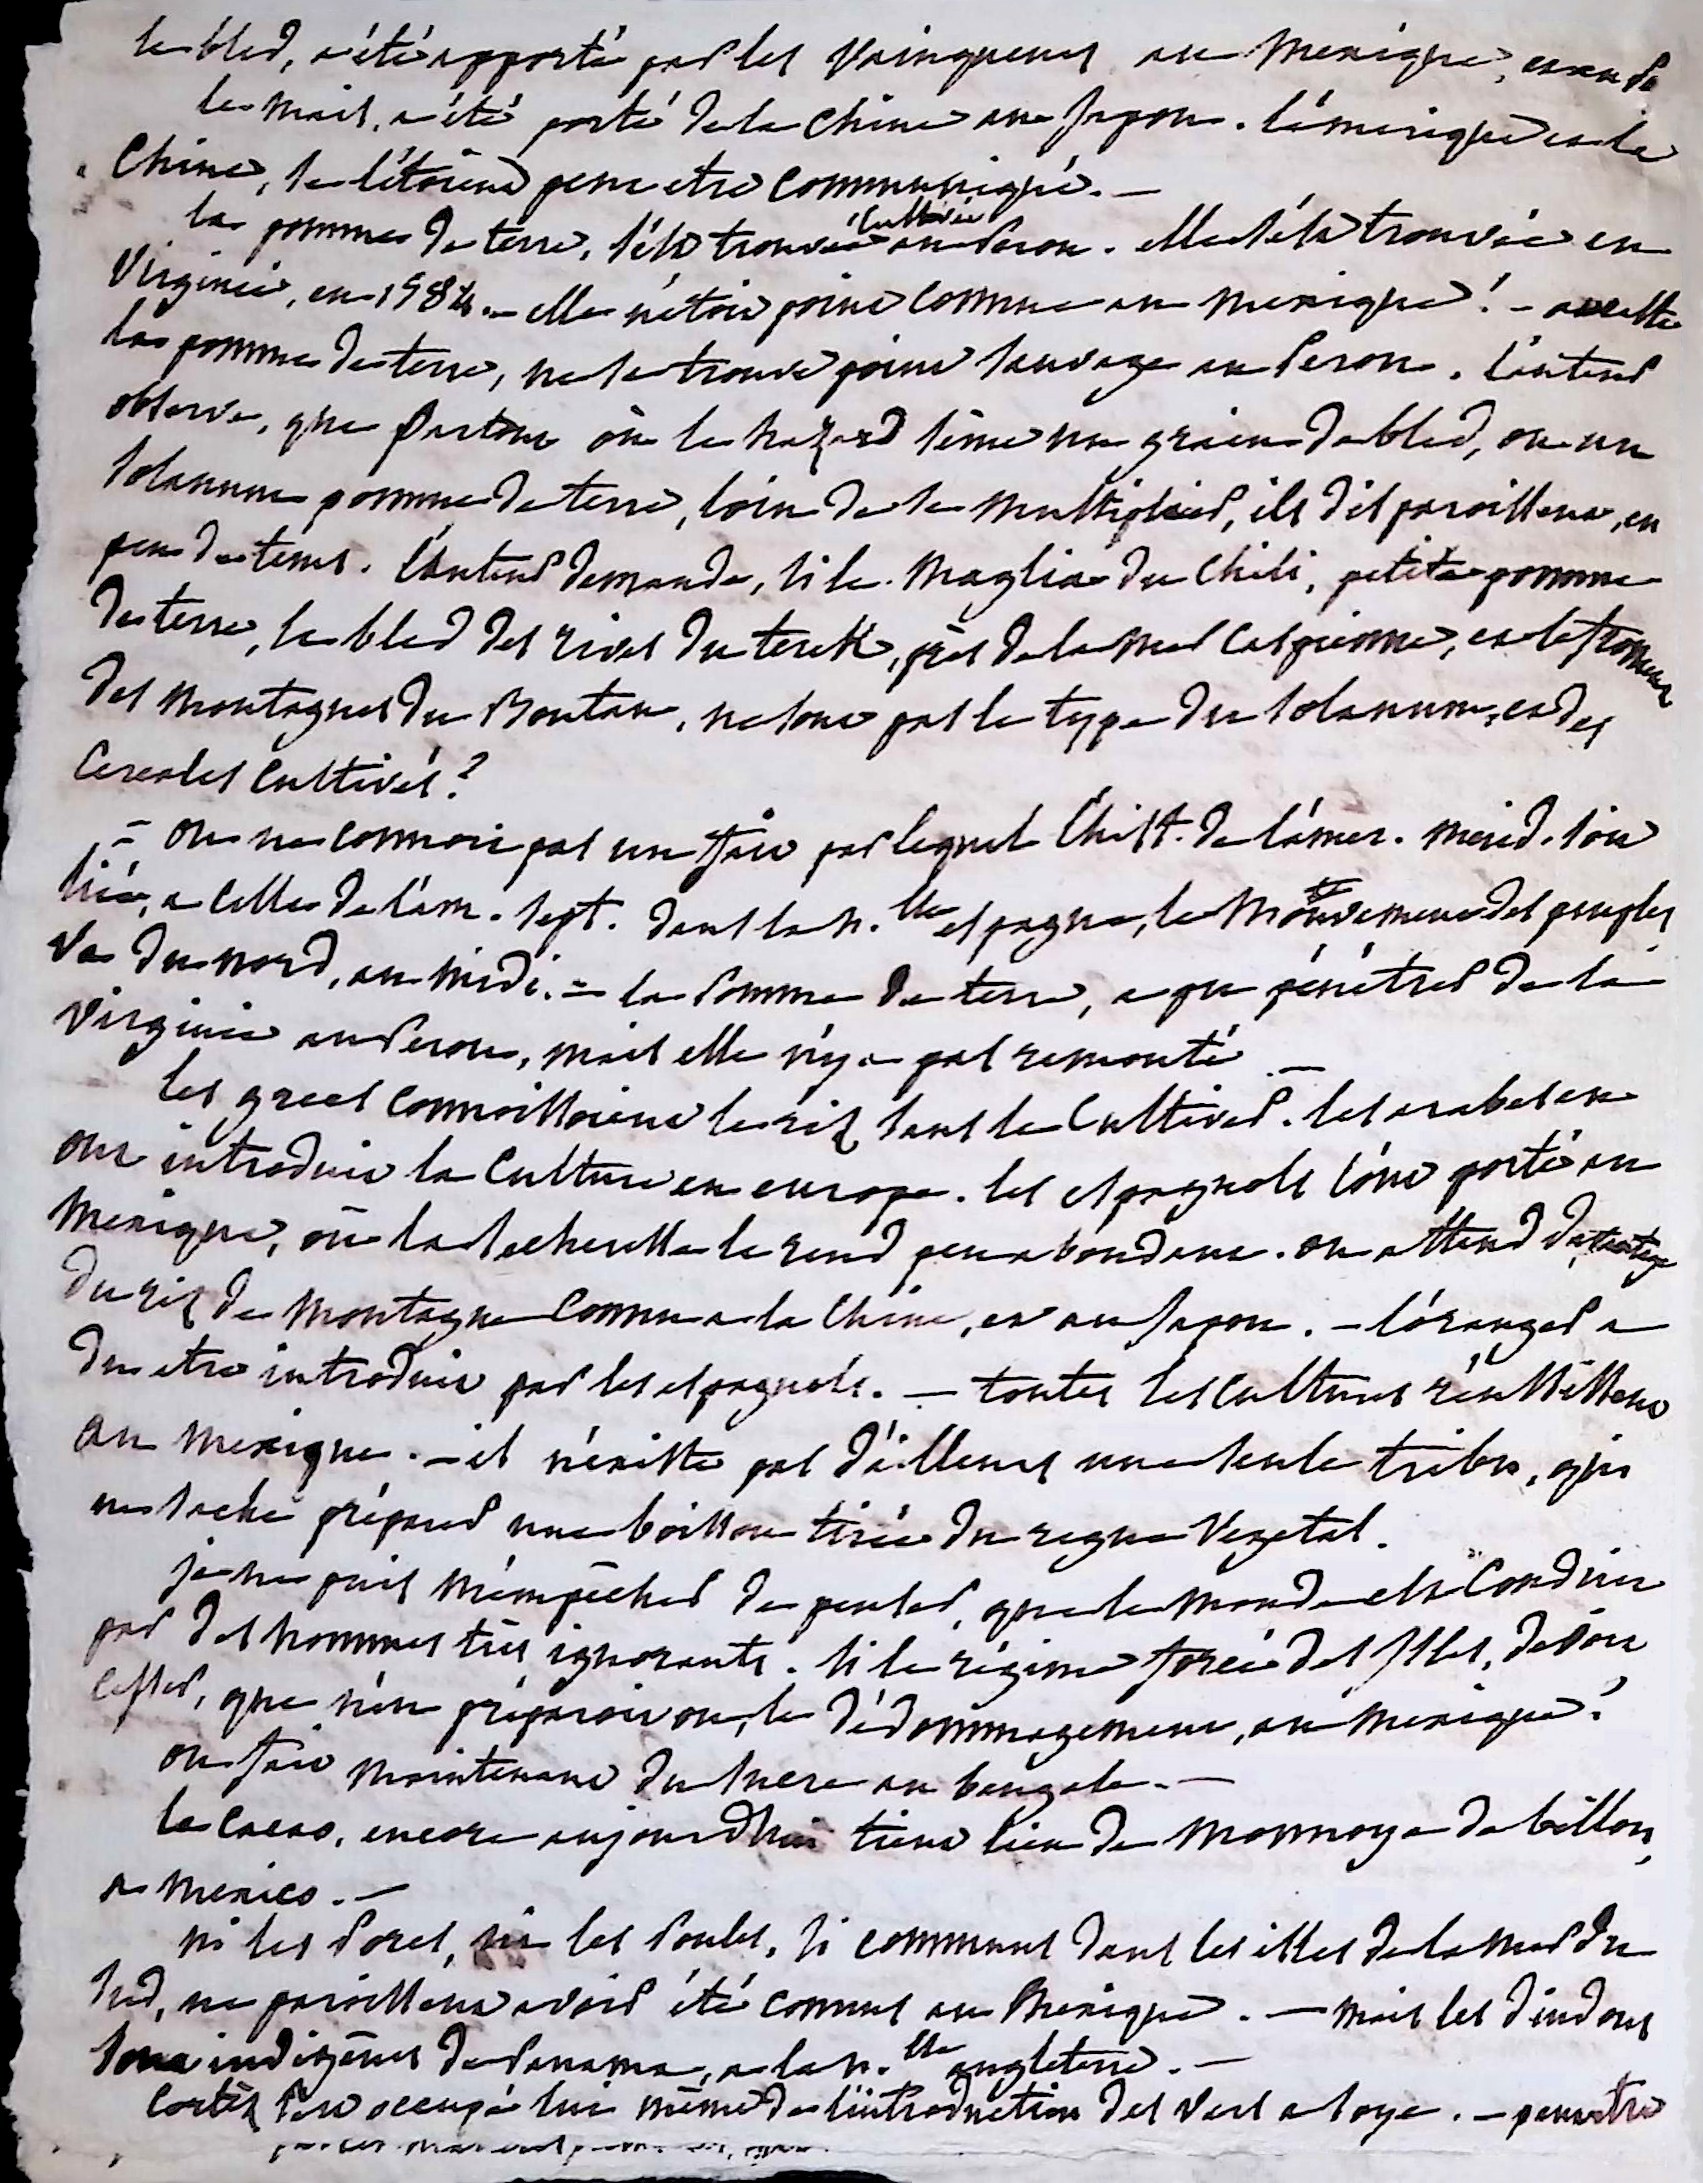 le bled, a été apporté par les vainqueurs au mexique, et au
le mais, a été porté de la chine au Japon. l'amerique et la
chine, se l'étoient peut etre communiqué. —
la pomme de terre, s'est trouvée cultivée au Perou. elle s'est trouvée en
Virginie, en 1584. — elle n'étoit point connue au mexique! —
la pomme de terre, ne se trouve point sauvage au Perou. l'auteur
observe, que Partout où le hazard sème un grain de bled, ou un
solanum pomme de terre, loin de se multiplier, ils disparoissent, en
peu de tems. l'auteur demande, si le Maglia du Chili, petite pomme
de terre, le bled des rives du terek, près de la mer Caspienne, et le froment
des montagnes du Boutan, ne sont pas le type du solanum, et des
Cereales Cultivés?
= on ne connoit pas un fait par lequel l'hist. de l'amer. merid. soit
liée, a celle de l'am. sept. dans la n.lle espagne, le Mouvement des peuples
va du nord, au midi. = la Pomme de terre, a pu pénétrer de la
Virginie au Perou, mais elle n'y a pas remonté —
les grecs connoissoient le riz sans le Cultiver. les arabes en
ont introduit la Culture en europe. les espagnols l'ont porté au
Mexique, où la secheresse le rend peu abondant. on attend
du riz de Montagne Connu a la Chine, et au Japon. — l'oranger a
du etre introduit par les espagnols. — toutes les Cultures réussissent
au mexique. — il n'existe pas d'ailleurs une seule tribu, qui
ne sache préparer une boisson tirée du regne Vegetal.
je ne puis m'empêcher de penser, que le monde est Conduit
par des hommes très ignorants. si le régime forcé des Isles, devoit
cesser, que n'en préparoit on, le dédommagement, au mexique?
on fait maintenant du sucre au bengale. —
le Cacao, encore aujourd'hui tient lieu de Monnoye de billon,
a Mexico. —
ni les Porcs, ni les Poules, si communs dans les isles de la mer du
Sud, ne paroissent avoir été connus au Mexique. — mais les dindons
sont indigènes de Panama, a la n.lle angleterre. —
Cortèz s'est occupé lui même de l'introduction des vers a soye. — peut etre